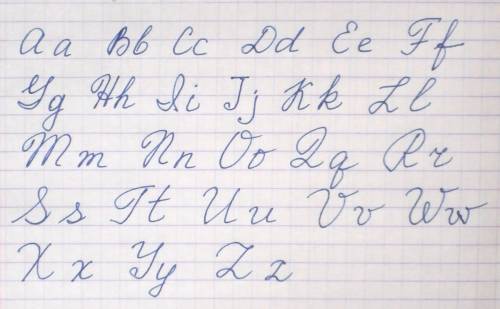 Aa Bb Cc Dd Ee Ff
Gg Hh Ii Jj Kk Ll
Mm Nn Oo Qq Rr
Ss Tt Uu Vv Ww
Xx Yy Zz